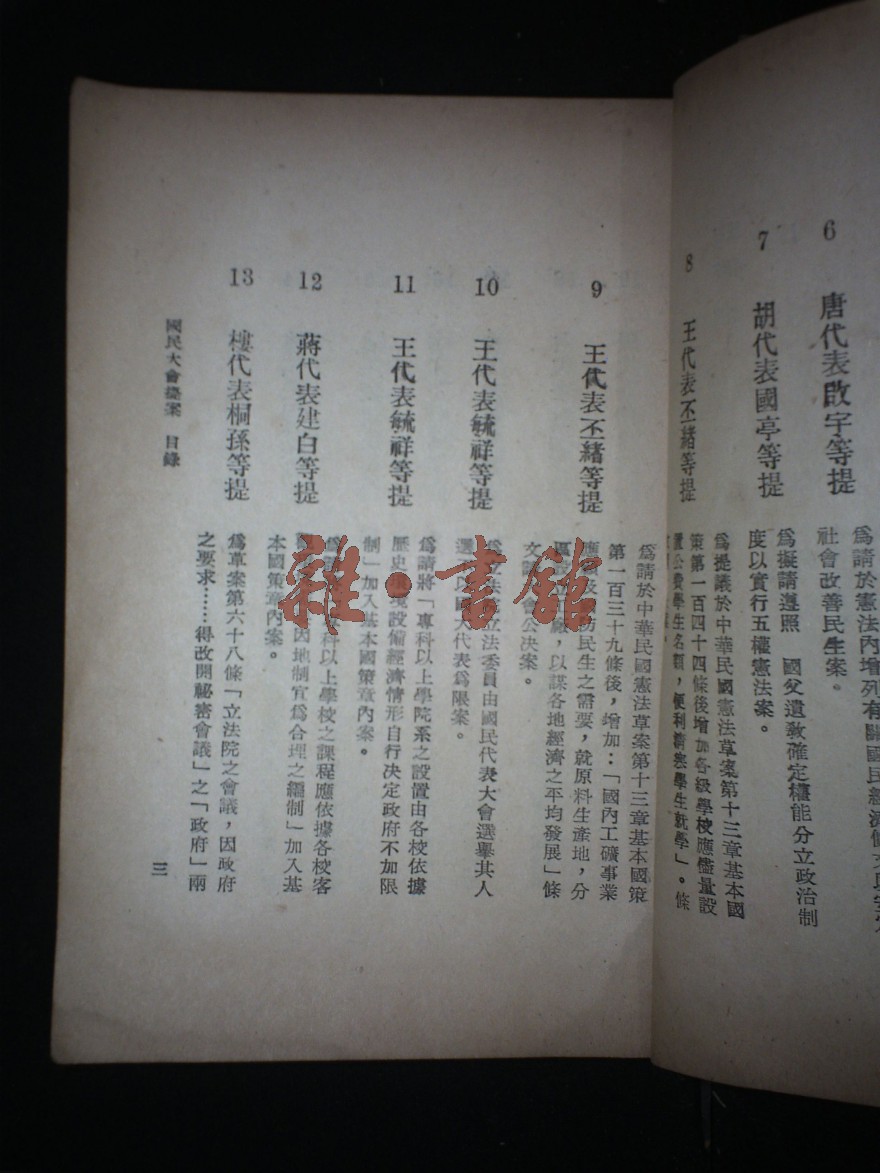 6
唐代表啟宇等提
爲請於憲法內增列有關國民經濟條文
社會改善民生案。
7
胡代表國亭等提
爲擬請遵照　國父遺敎確定權能分立政治制
度以實行五權憲法案。
8
王代表丕緒等提
爲提議於中華民國憲法草案第十三章基本國
策第一百四十四條後增加各級學校應儘量設
置公費學生名額，便利淸寒學生就學」。條
9
王代表丕緒等提
爲請於中華民國憲法草案第十三章基本國策
第一百三十九條後，增加：「國內工礦事業
應　　防民生之需要，就原料生產地，分
，以謀各地經濟之平均發展」條
文　會公決案。
10
王代表毓祥等提
爲立法　立法委員由國民代表大會選舉其人
選　以國大代表爲限案。
11
王代表毓祥等提
爲請將「專科以上學院系之設置由各校依據
歷史環境設備經濟情形自行決定政府不加限
制」加入基本國策章內案。
12
蔣代表建白等提
爲　科以上學校之課程應依據各校客
因地制宜爲合理之編制」加入基
本國策章內案。
13
樓代表桐孫等提
爲草案第六十八條「立法院之會議，因政府
之要求……得改開祕密會議」之「政府」兩
國民大會提案　目錄
三
雜·書館